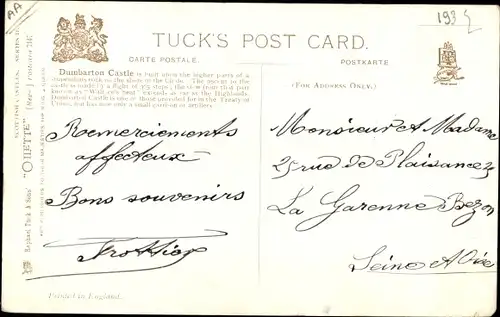 AA
1932
TUCK'S POST CARD.
CARTE POSTALE.
POSTKARTE
(FOR ADDRESS ONLY.)
Dumbarton Castle is built upon the higher parts of a
stupendous rock on the shore of the Clyde. The ascent to the
castle is made by a flight of 365 steps, the view from that part
known as "Wallace's Seat" extends as far as the Highlands.
Dumbarton Castle is one of those provided for in the Treaty of
Union, but has now only a small garrison of artillery.
Remerciements
affectueux
Bons souvenirs
Trottier
Monsieur et Madame
25 rue de Plaisance 25
La Garenne Bezon
Seine et Oise
Raphael Tuck & Sons' "OILETTE" [Regd.]
Printed in England.